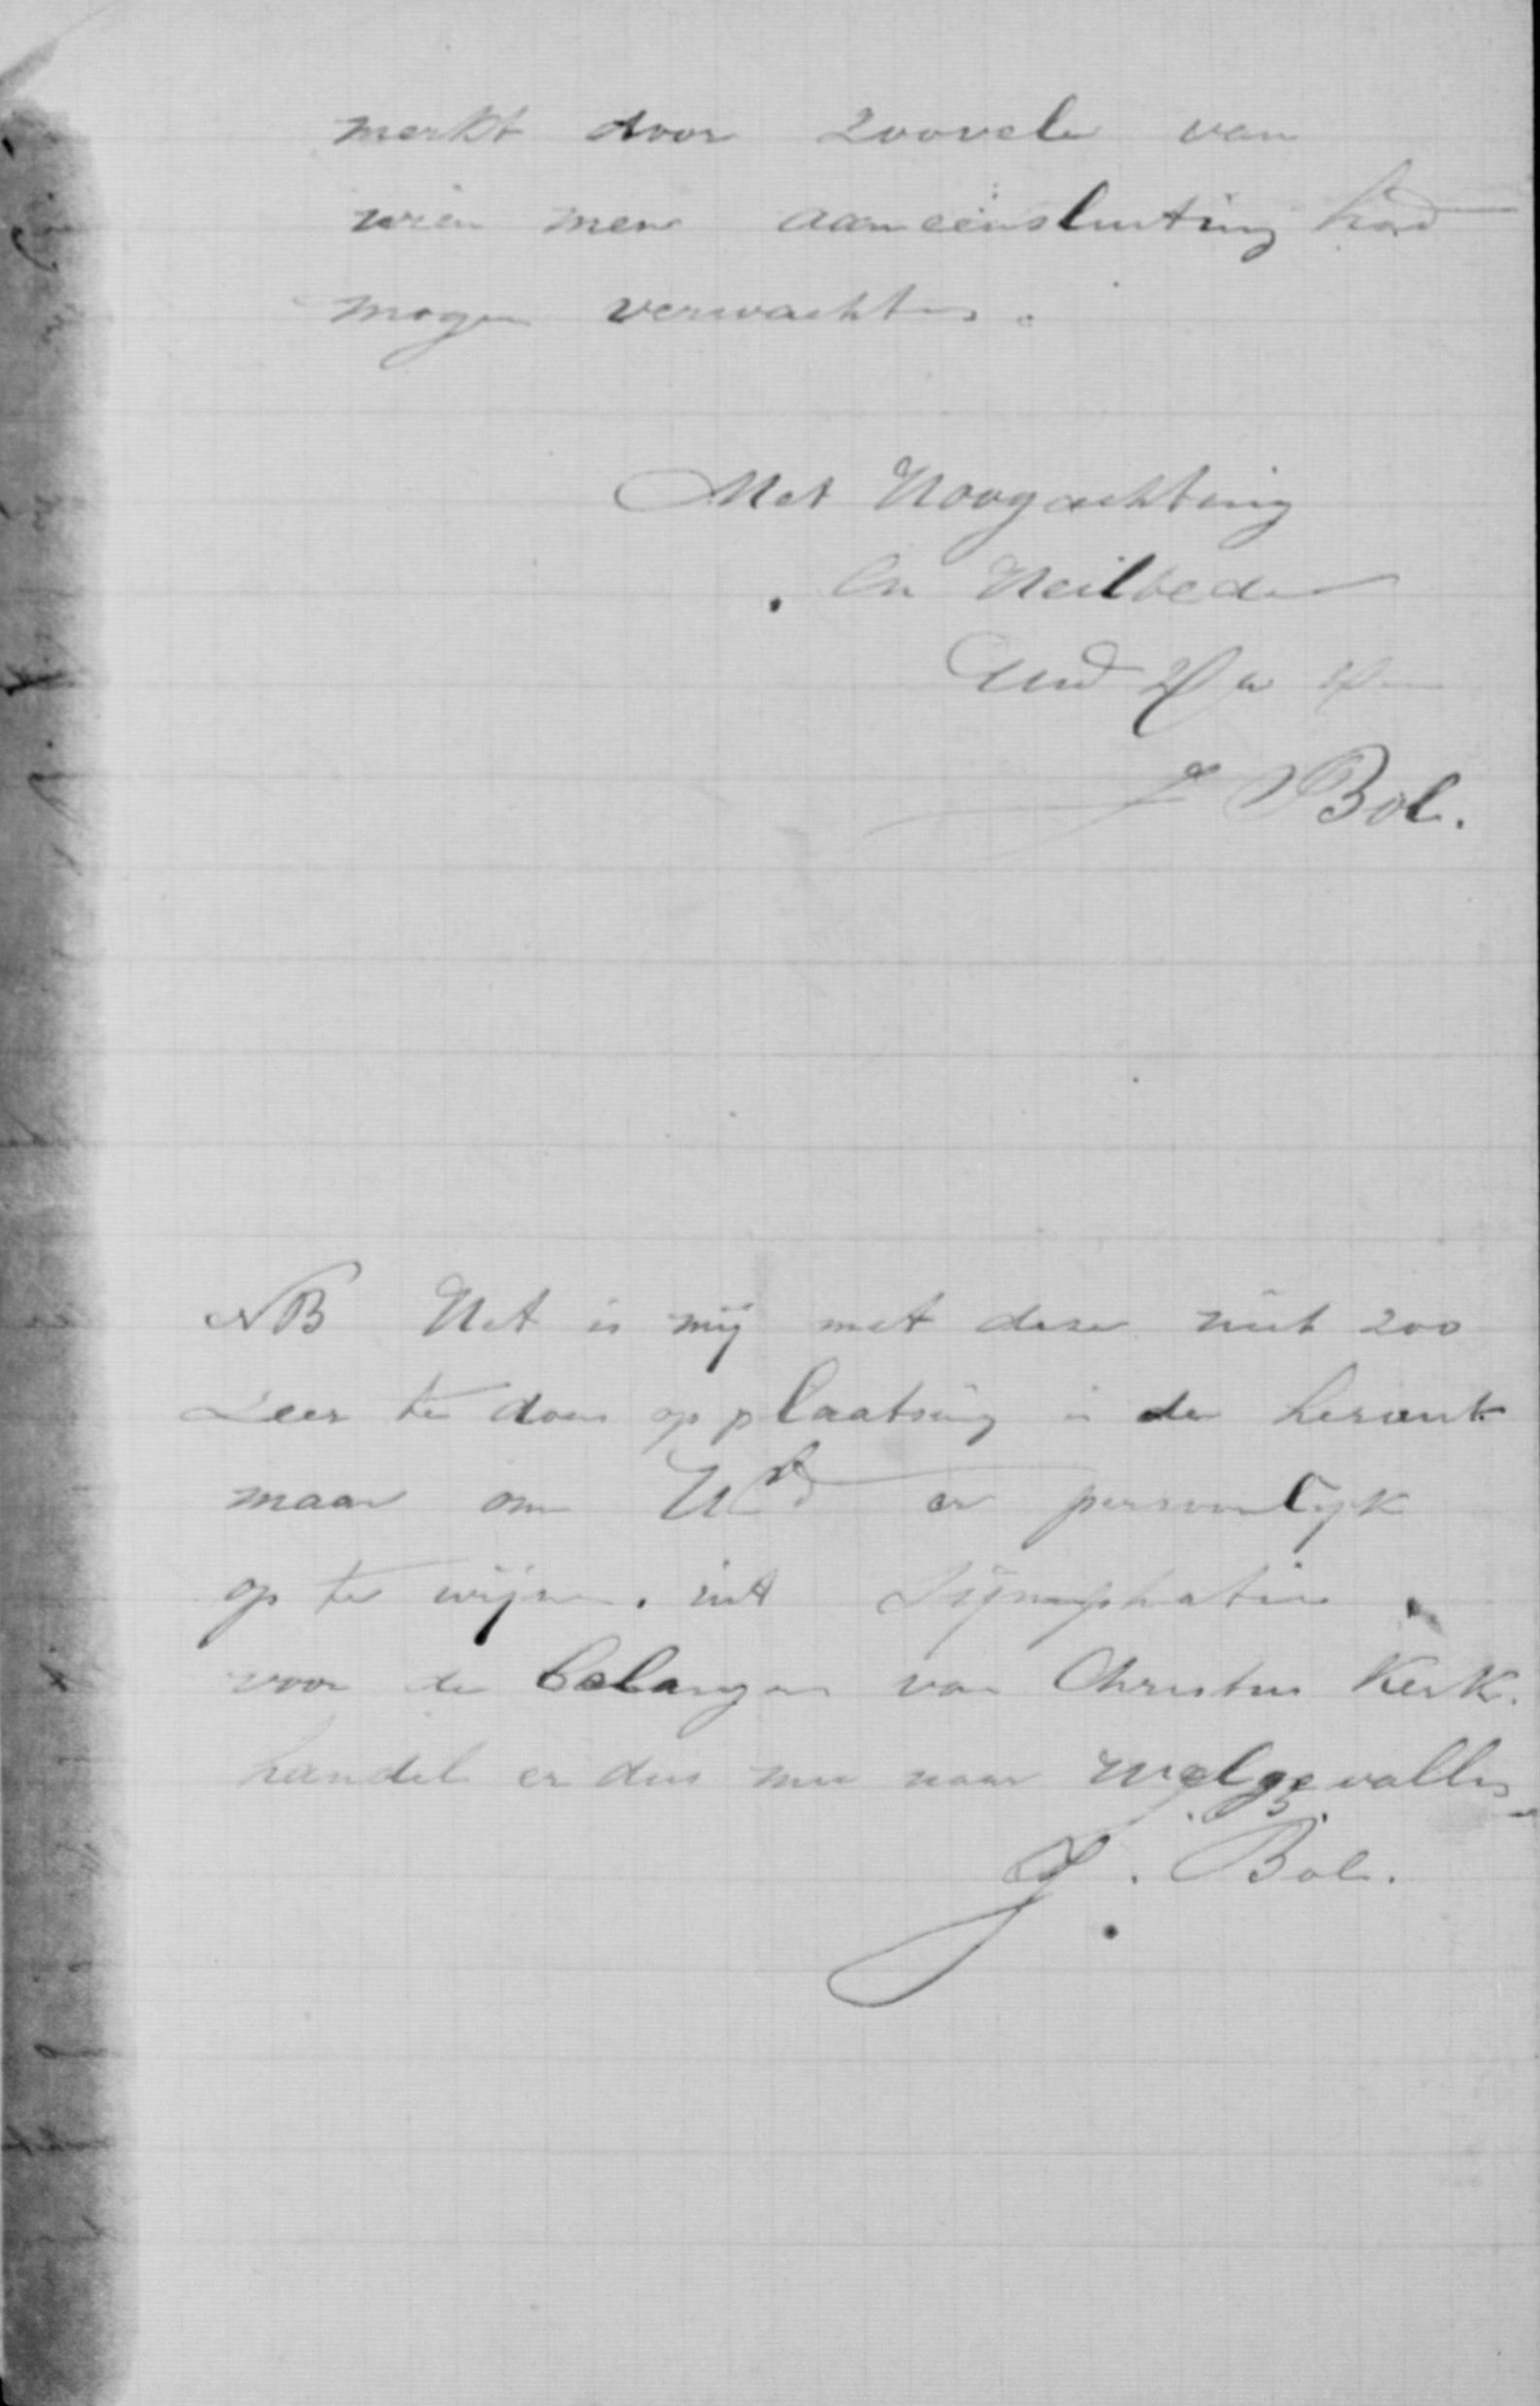 merkt door zoovele van
wien men aaneensluiting had
mogen verwachten.
Met Hoogachting
en Heilbede
Uwd
J Bol.
NB Het is mij met deze niet zoo
zeer te doen op plaatsing in de heraut
maar om UEd er persoonlijk
op te wijzen. uit Sijmphatie
voor de belangen van Christus Kerk.
handel er dus mee naar welgevallen
J. Bol.